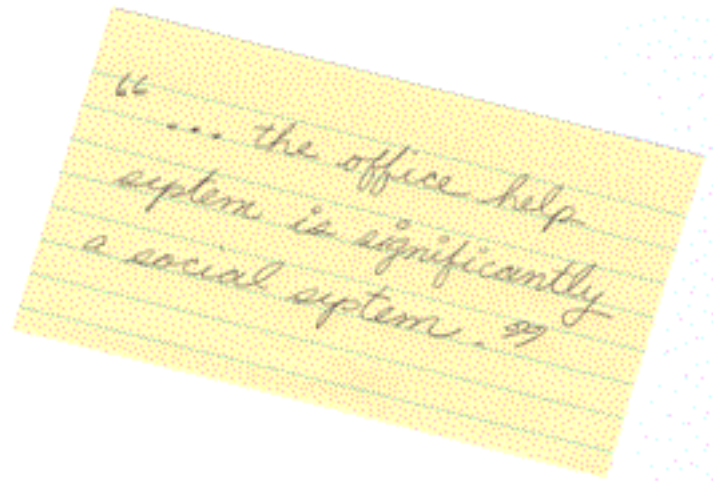 “ ... the office help
system is significantly
a social system. ”